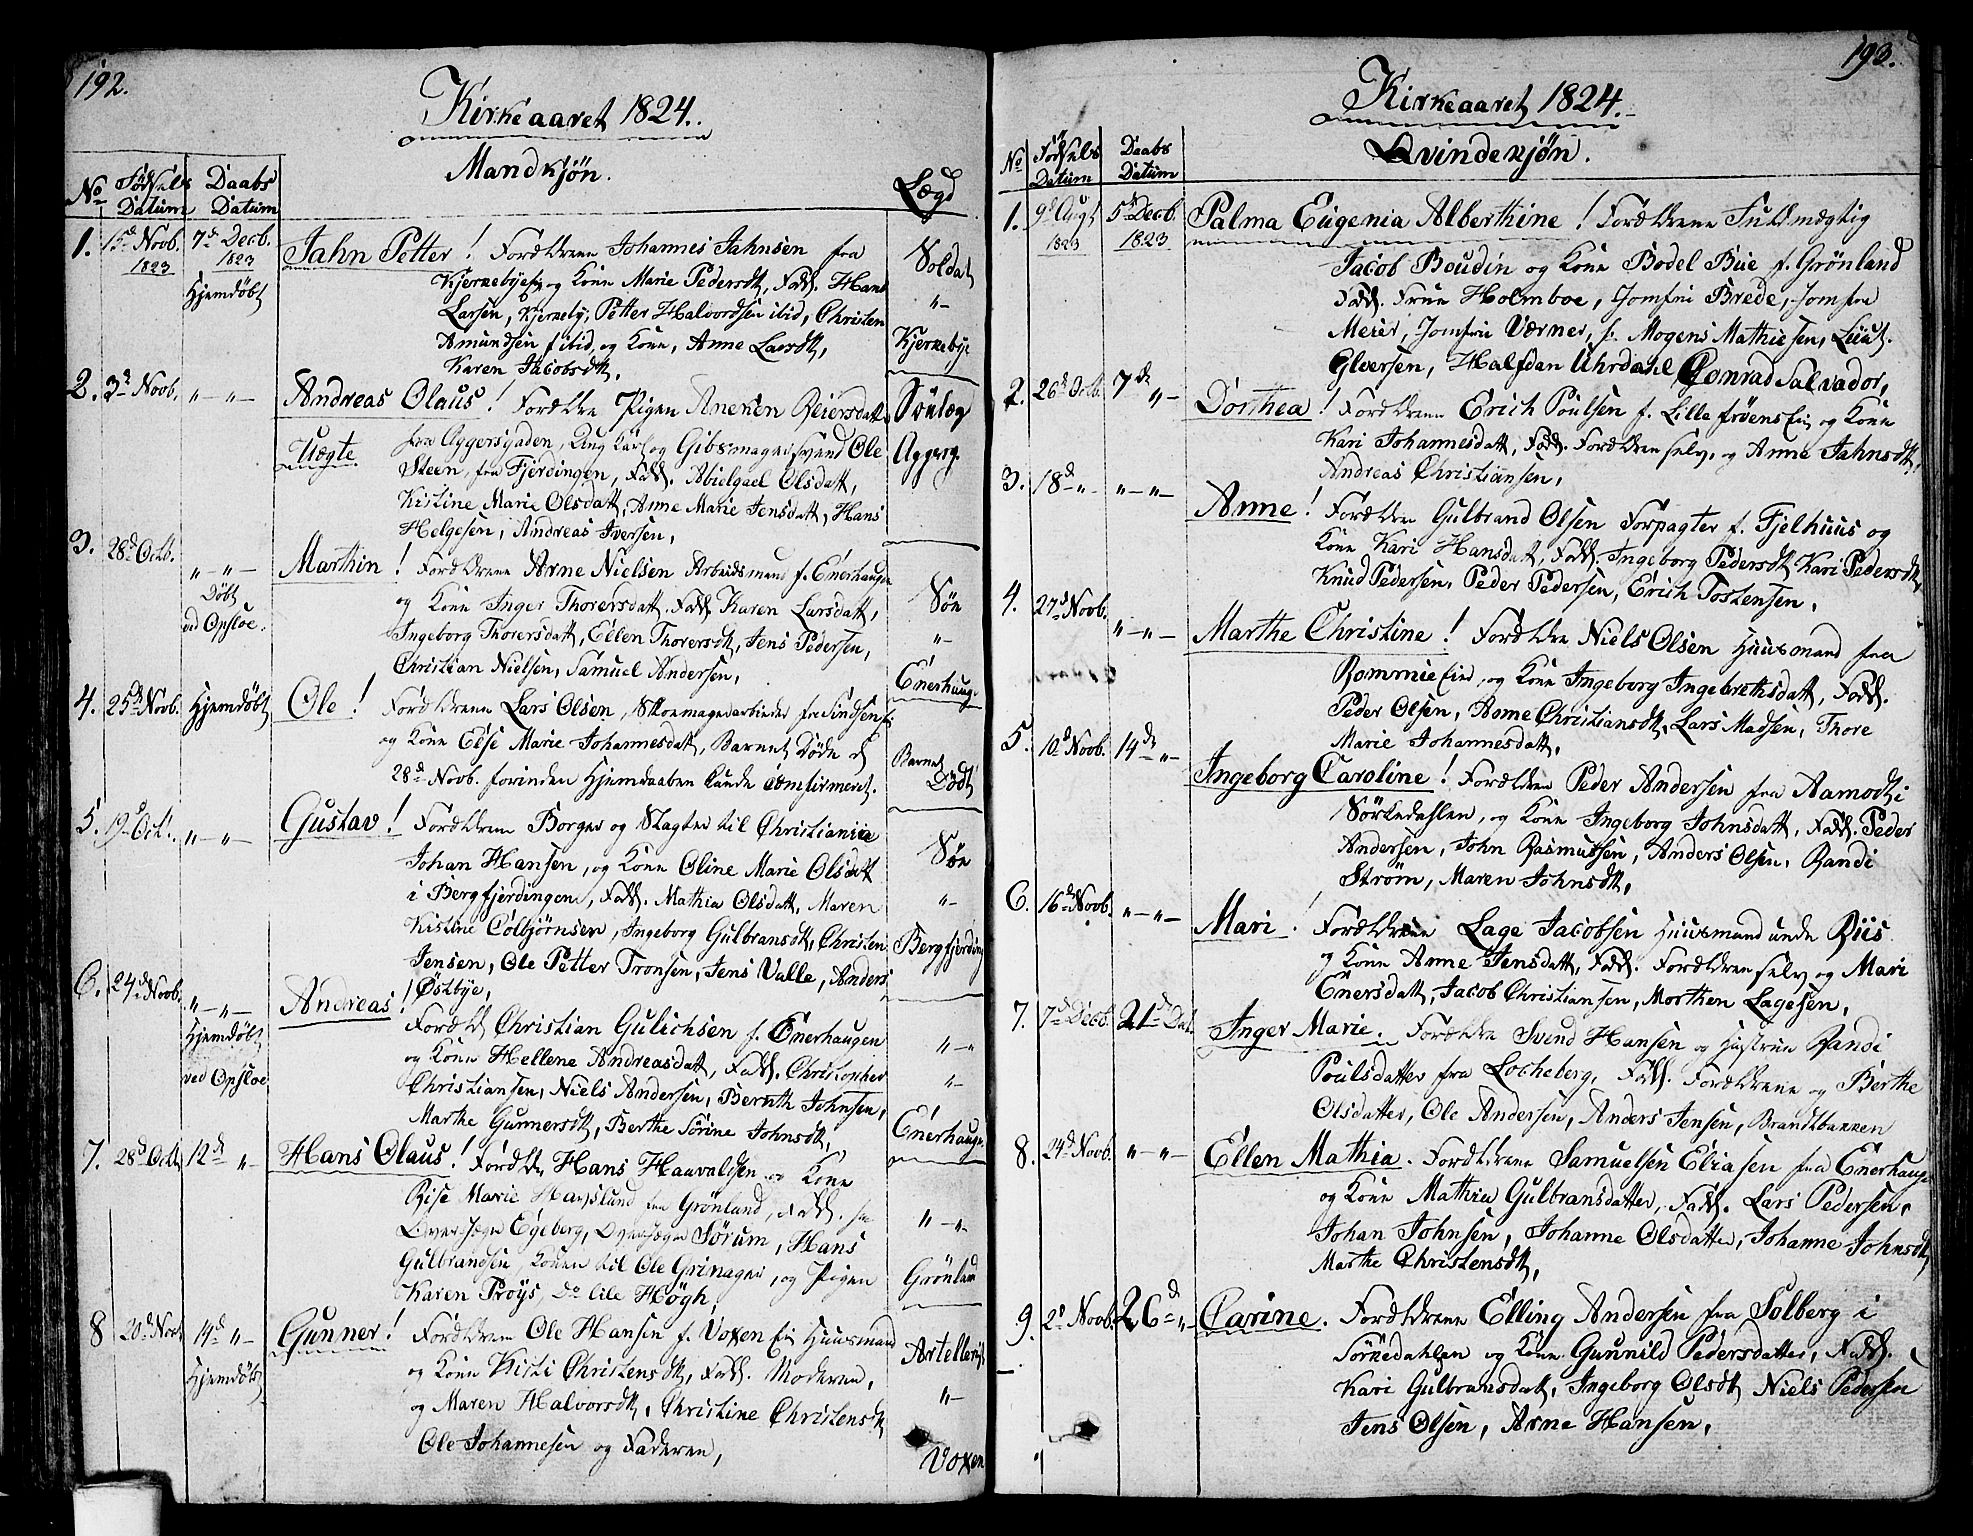 192.
Kirkeaaret 1824.
Mandkjön.
No Födsels Datum Daabs Datum Lægd
1. 15d Novb. 1823 7d Decb. 1823 Hjemdöbt
Jahn Petter! Forældrene Johannes Jahnsen fra
Kjernebye og Kone Marie Pedersdt, Fadd. Hans
Larsen, Kjerneby, Petter Halvordsen ibid, Christen
Amundsen ibid og Kone, Anne Larsdt,
Karen Jacobsdt.
Soldat
"–
Kjernebye
2. 3d Novb. "–"–
Andreas Olaus! Forældre Pigen Aneken Reiersdatt
Uægte. fra Aggersgaden, Ung Karl og Gibsmagersvend Ole
Steen, fra Fjerdingen, Fadd. Abielgael Olsdatt,
Kistine Marie Olsdatt, Anne Marie Jensdatt, Hans
Helgesen, Andreas Iversen,
Aggersg.
3. 28d Octb. "–"– Döbt ved Opsloe.
Marthin! Forældrene Arne Nielsen Arbeidsmand f. Enerhaugen
og Kone Inger Thorersdatt. Fadd. Karen Larsdatt,
Ingeborg Thorersdatt, Ellen Thorersdt, Jens Pedersen,
Christian Nielsen, Samuel Andersen,
Sön
"–
Enerhaug.
4. 25d Novb. Hjemdöbt
Ole! Forældrene Lars Olsen, Skomagerarbeider fra Sindsen
og Kone Else Marie Johannesdatt, Barnet Döde d
28d Novb. forinden Hjemdaaben kunde comfirmeret.
Barnet
Dödt
5. 19d Oct. "–"–
Gustav! Forældrene Borger og Slagter til Christiania
Johan Hansen, og Kone Oline Marie Olsdatt
i Bergfjerdingen, Fadd. Mathia Olsdatt, Maren
Kistine Colbjörnsen, Ingeborg Gulbransdt, Christen
Jensen, Ole Petter Tronsen, Jens Valle, Anders
Østbye,
Sön
"–
Bergfjerding
6. 24d Novb. "–"– Hjemdöbt ved Opsloe
Andreas! Foræld. Christian Gulichsen f. Enerhaugen
og Kone Hellene Andreasdatt, Fadd. Christopher
Christiansen, Niels Andersen, Bernth Johnsen,
Marthe Gunnersdt, Berthe Sörine Johnsdt,
"–"
"–
Enerhaugn.
7. 28d Octb 12d "–
Hans Olaus! Foræld Hans Haavalsen og Kone
Rise Marie Hafslund fra Grönland, Fadd.
Egeberg, Sörum, Hans
Gulbrandsen, Konen til Ole Grinager, og Pigen
Karen Tröys, Do Höyh,
"–"–
Grönland
8 20d Novb 14d "– Hjemdöbt
Gunner! Forældrene Ole Hansen f. Voxen Ein Huusmand
og Kone Kisti Christensdt, Fadd. Moderen,
og Maren Halvorsdt, Christine Christensdt
Ole Johannesen og Faderen,
Artellerist
"–
Voxen
193.
Kirkeaaret 1824.
Qvindekjön.
No Födsels Datum Daabs Datum
1. 9d Augt 1823 5d Decb. 1823
Palma Eugenia Alberthine! Forældrene Fuldmægtig
Jacob Boudin og Kone Bodel Bue f. Grönland
Fadd. Frue Holmboe, Jomfru Brede, Jomfru
Meier, Jomfru Værner, Hr. Mogens Mathiesen, Lieut.
Glversen, Halfdan Uhrdahl Conrad Salvador,
2. 26d Octb. 7d "–
Dorthea! Forældrene Erich Poulsen f. Lille Fröens Ein og Kone
Kari Johannesdatt, Fadd. Forældrene selv, og Anne Jahnsdt,
Andreas Christiansen,
3. 18d "– "–"–
Anne! Forældre Gulbrand Olsen Forpagter f. Fjelhuus og
Kone Kari Hansdatt, Fadd. Ingeborg Pedersdt Kari Pedersdt,
Knud Pedersen, Peder Pedersen, Erich Tostensen,
4. 27d Novb. "–"–
Marthe Christine! Forældre Niels Olsen Huusmand fra
Rommie Eie, og Kone Ingeborg Ingebrethsdatt, Fadd.
Peder Olsen, Anne Christiansdt, Lars Madsen, Thore
Marie Johannesdatt,
5. 10d Novb. 14d "–
Ingeborg Caroline! Forældrene Peder Andersen fra Aamodt i
Sörkedahlen, og Kone Ingeborg Johnsdatt, Fadd. Peder
Andersen, John Rasmussen, Anders Olsen, Randi
Ström, Maren Johnsdt,
6. 16d Novb. "–"–
Mari! Forældrene Lage Jacobsen Huusmand under Riis
og Kone Anne Jensdatt, Fadd. Forældrene selv og Mari
Enersdatt, Jacob Christiansen, Morthen Lagesen,
7. 7d Decb. 21d Det.
Inger Marie. Forældre Svend Hansen og Hustrue Randi
Poulsdatter fra Locheberg, Fadd. Forældrene og Berthe
Olsdatter, Ole Andersen, Anders Jensen, Brandtbakken
8. 24d Novb. "–"–
Ellen Mathia. Forældrene Samuelsen Eliasen fra Enerhaugn
og Kone Mathia Gulbransdatter, Fadd. Lars Pedersen,
Johan Johnsen, Johanne Olsdatter, Johanne Johnsdt,
Marthe Christensdt,
9. 2d Novb. 26d "–
Carine. Forældrene Elling Andersen fra Solberg i
Sörkedahlen og Kone Gunnild Pedersdatter, Fadd.
Kari Gulbransdatt, Ingeborg Olsdt Niels Pedersen
Jens Olsen, Arne Hansen,